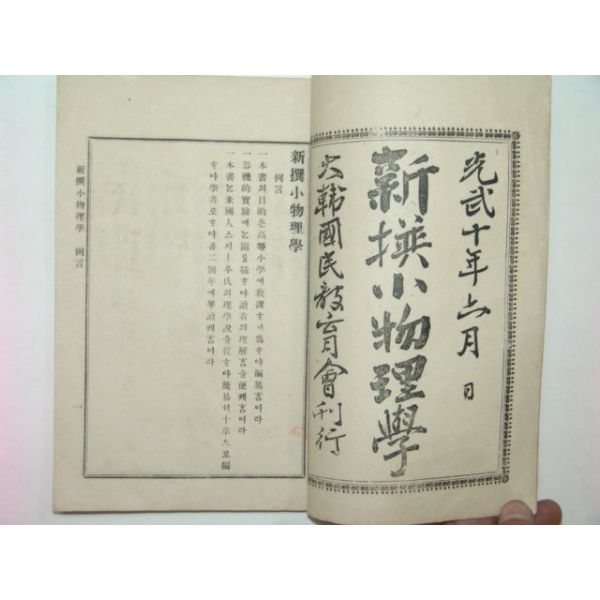 光武十年六月 日
新撰小物理學
大韓國民敎育會刊行
新撰小物理學
例言
一本書의目的은高等小學에敎課ᄒᆞ기爲ᄒᆞ야編纂홈이라
一器機的實驗에ᄂᆞᆫ圖를揷ᄒᆞ야讀者의理解홈을便케홈이라
一本書ᄂᆞᆫ米國人스지ㅣ루氏의理學說을從ᄒᆞ야簡易히十章으로編
ᄒᆞ야學者로ᄒᆞ야곰二個年에畢讀케홈이라
新撰小物理學 例言